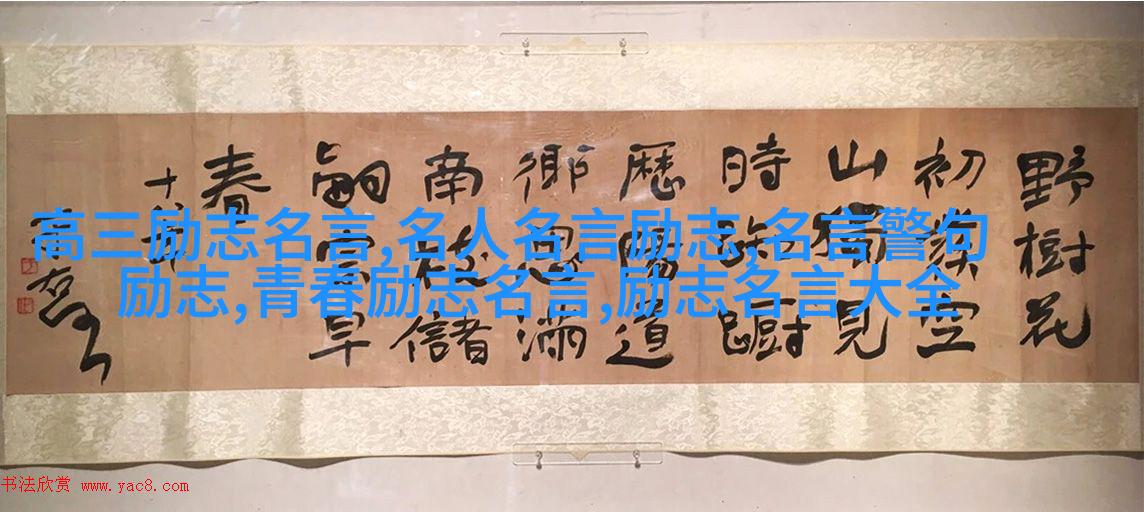 野樹花
初發空
山獨見
時踟躕
歷陽道
鄉思滿
南枝儲
嗣宗早
春
高三励志名言,名人名言励志,名言警句
励志,青春励志名言,励志名言大全
书法欣赏 www.yac8.com